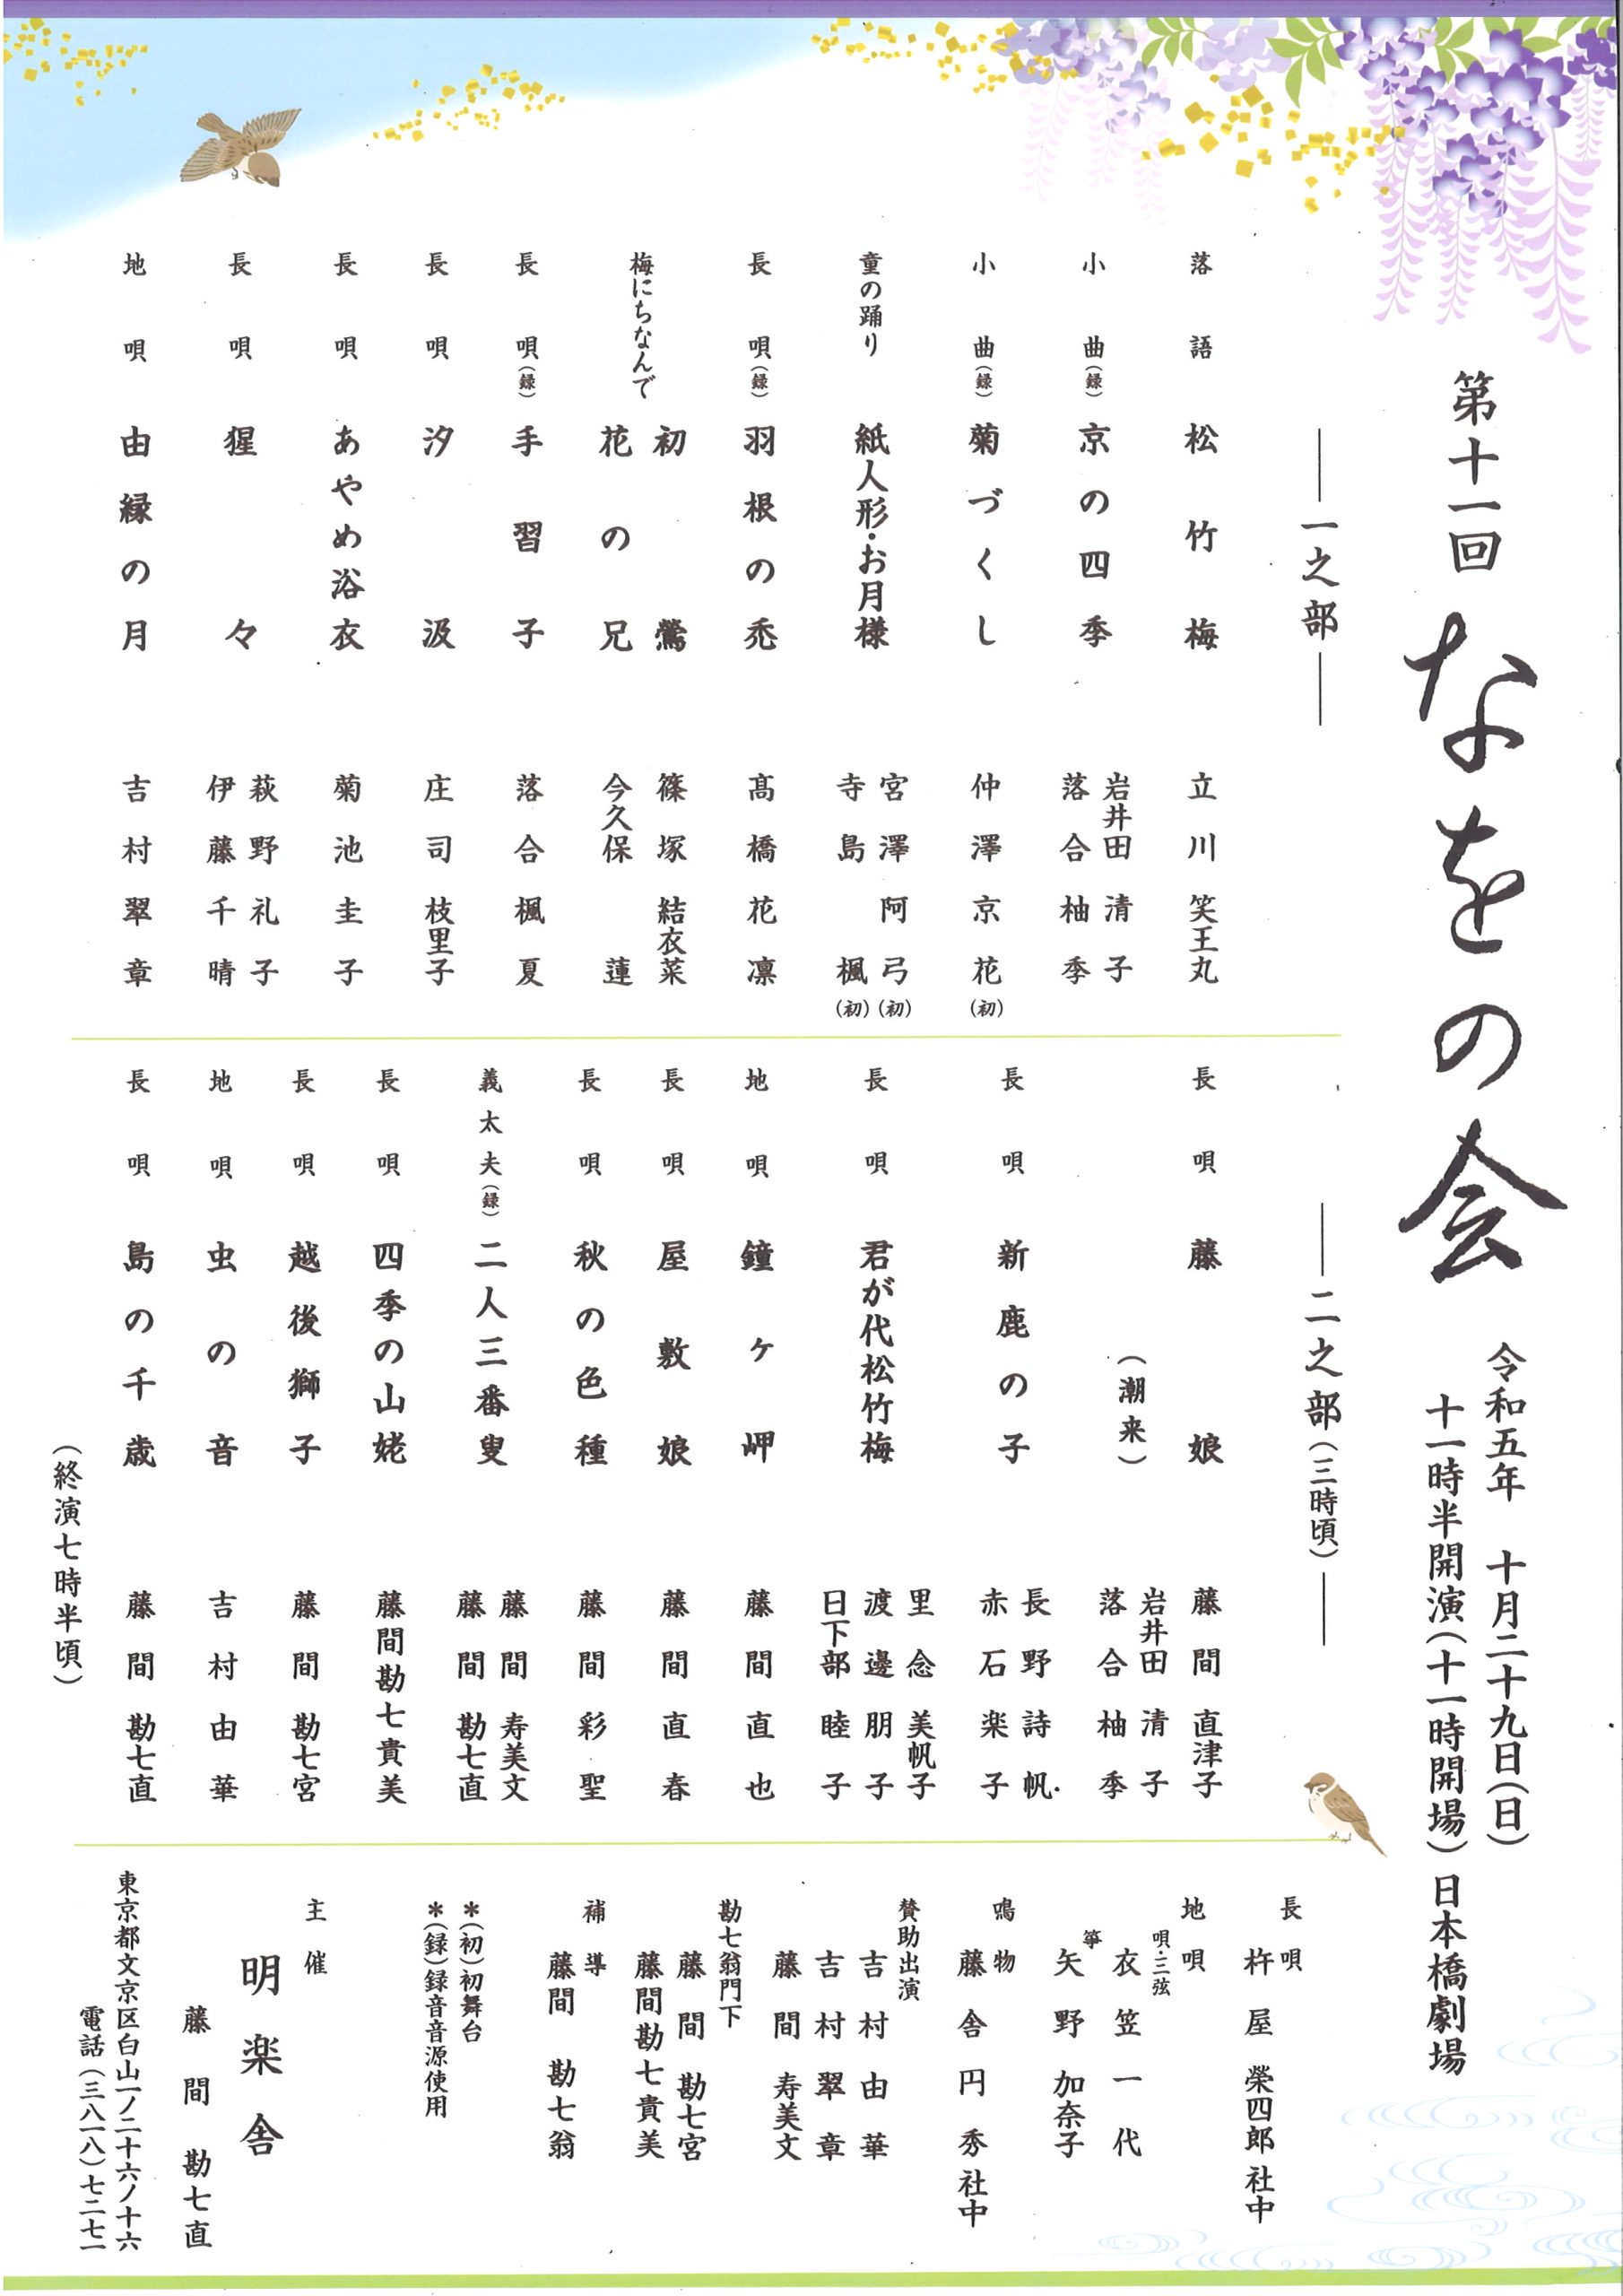 第十一回 なをの会
令和五年 十月二十九日(日)
十一時半開演(十一時開場) 日本橋劇場
一之部
落語 松竹梅 立川笑王丸
小曲(録) 京の四季 岩井田清子
落合柚季
小曲(録) 菊づくし 仲澤京花(初)
童の踊り 紙人形・お月様 宮澤阿弓(初)
寺島楓(初)
長唄(録) 羽根の禿 髙橋花凛
梅にちなんで
初鶯 篠塚結衣菜
花の兄 今久保蓮
長唄(録) 手習子 落合楓夏
長唄 汐汲 庄司枝里子
長唄 あやめ浴衣 菊池圭子
長唄 猩々 萩野礼子
伊藤千晴
地唄 由縁の月 吉村翠章
二之部(三時頃)
長唄 藤娘 藤間直津子
(潮来) 岩井田清子
落合柚季
長唄 新鹿の子 長野詩帆
赤石楽子
長唄 君が代松竹梅 里念美帆子
渡邊朋子
日下部睦子
地唄 鐘ヶ岬 藤間直也
長唄 屋敷娘 藤間直春
長唄 秋の色種 藤間彩聖
義太夫(録) 二人三番叟 藤間寿美文
藤間勘七直
長唄 四季の山姥 藤間勘七貴美
長唄 越後獅子 藤間勘七宮
地唄 虫の音 吉村由華
長唄 島の千歳 藤間勘七直
(終演七時半頃)
長唄
杵屋榮四郎社中
地唄
唄・三弦 衣笠一代
箏 矢野加奈子
鳴物
藤舎円秀社中
賛助出演
吉村由華
吉村翠章
藤間寿美文
勘七翁門下
藤間勘七宮
藤間勘七貴美
補導
藤間勘七翁
＊(初)初舞台
＊(録)録音音源使用
主催
明楽舎
藤間勘七直
東京都文京区白山一ノ二十六ノ十六
電話(三八一八)七二七一